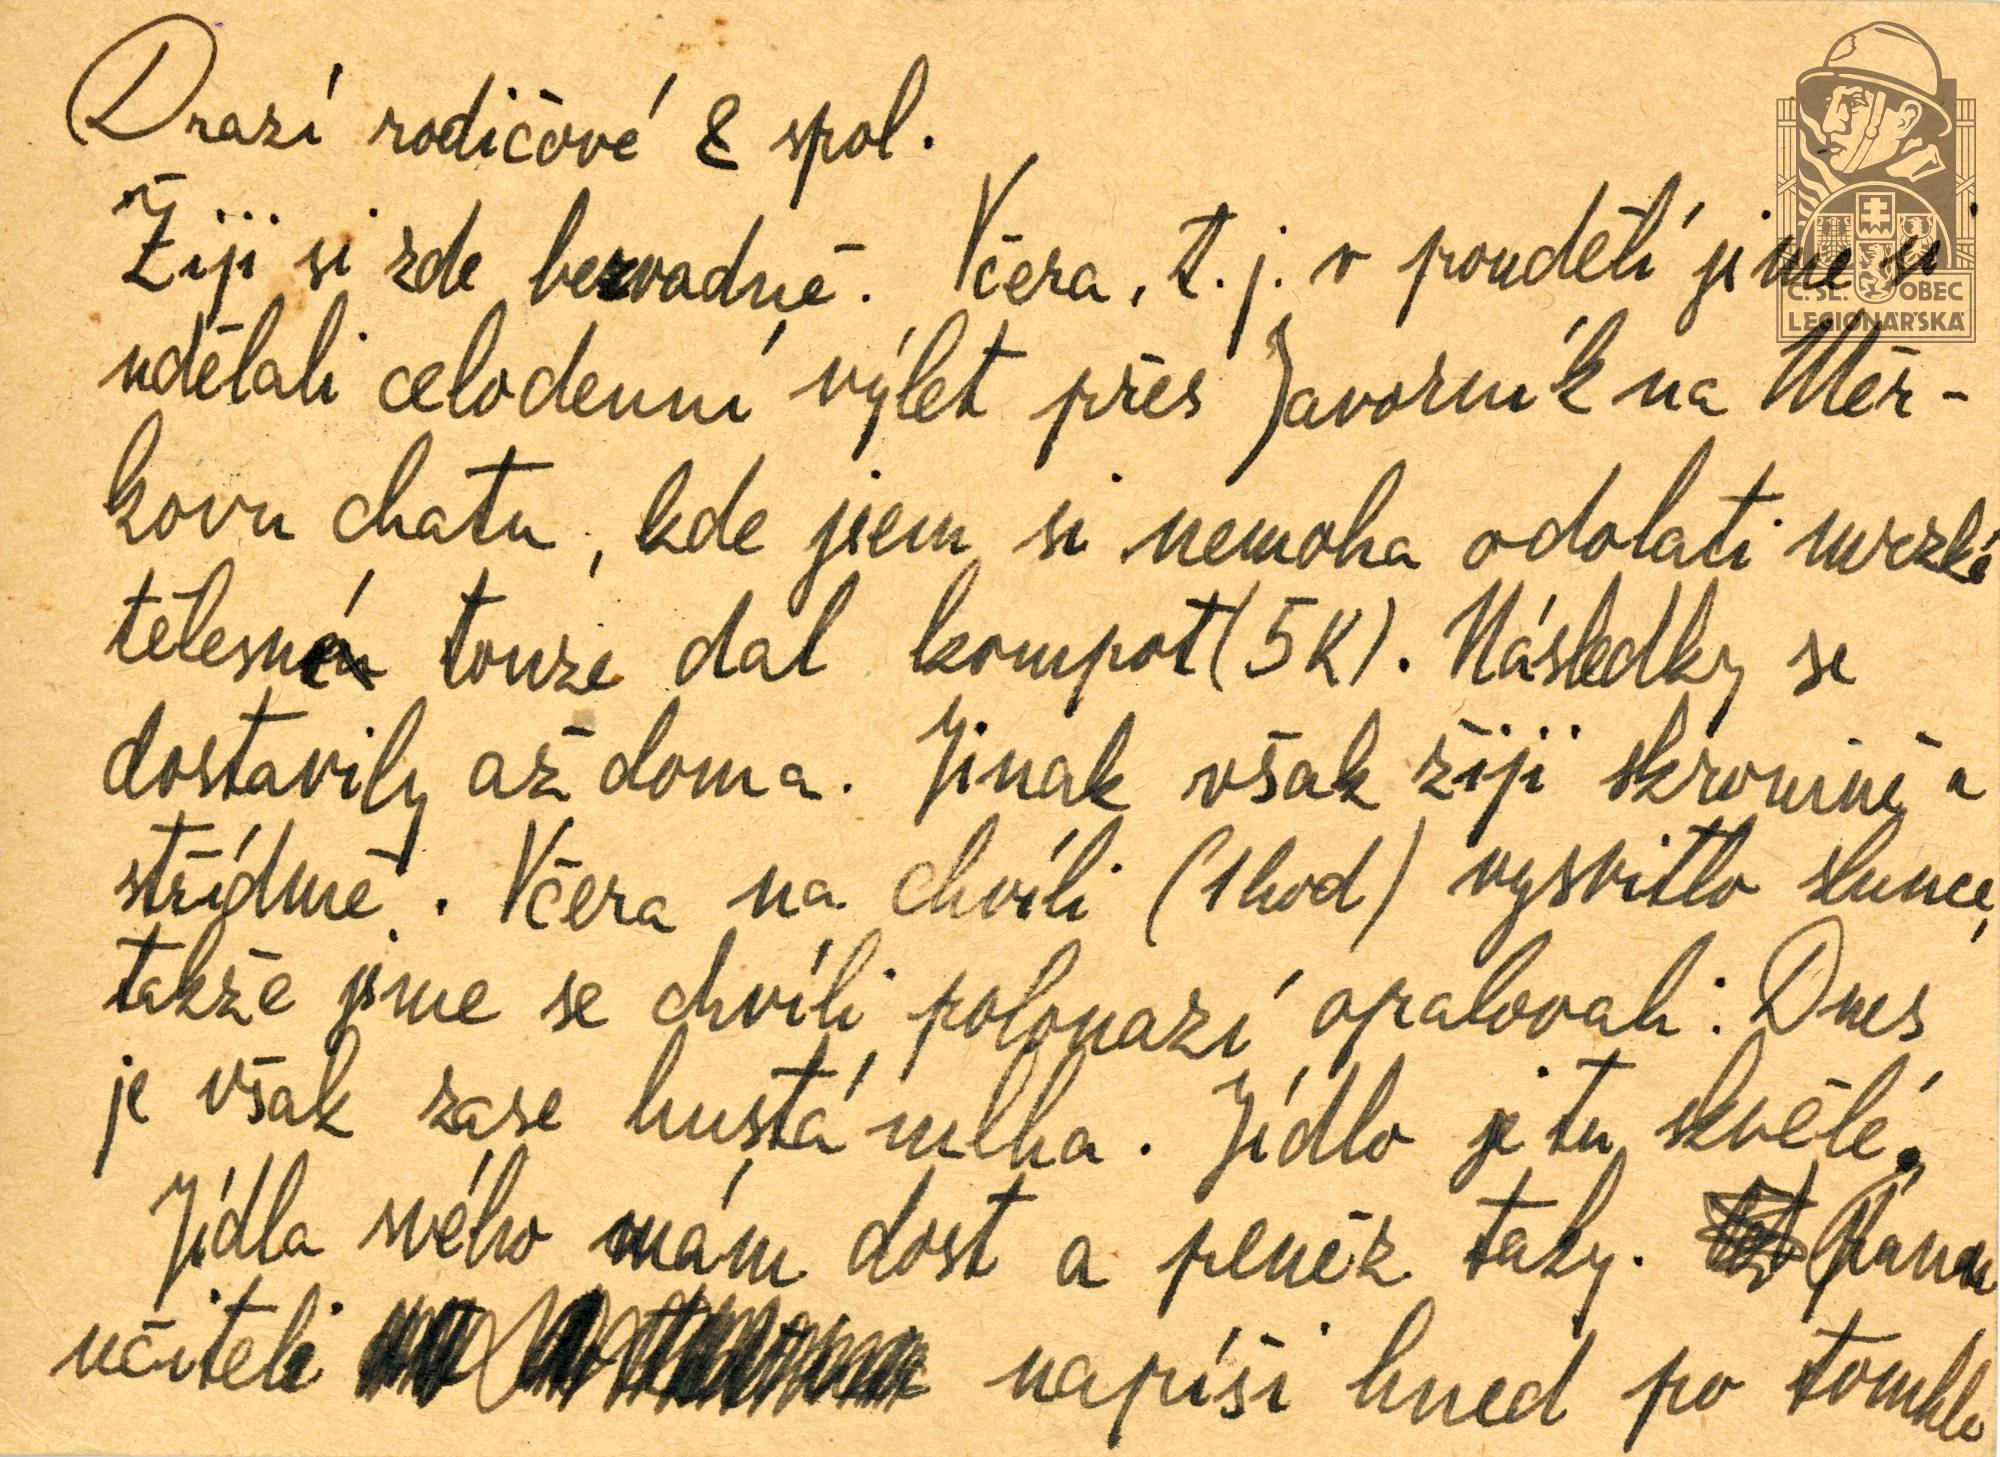 Drazí rodičové & spol.
Žiji si zde bezvadně. Včera, t. j. v pondělí jsme si
udělali celodenní výlet přes Javorník na Měr-
kovu chatu, kde jsem si nemoha odolati mrzké
tělesné touze dal kompot (5K). Následky se
dostavily až doma. Jinak však žiji skromně a
střídmě. Včera na chvíli (1hod) vysvitlo slunce,
takže jsme se chvíli polonazí opalovali. Dnes
je však zase hustá mlha. Jídlo je tu skvělé.
Jídla svého mám dost a peněz taky. Panu
učiteli napíši hned po tomhle
Č. SL. OBEC
LEGIONÁŘSKÁ